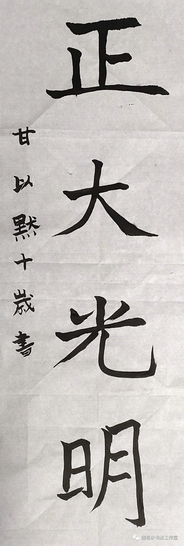 正大光明
甘以默十歲書